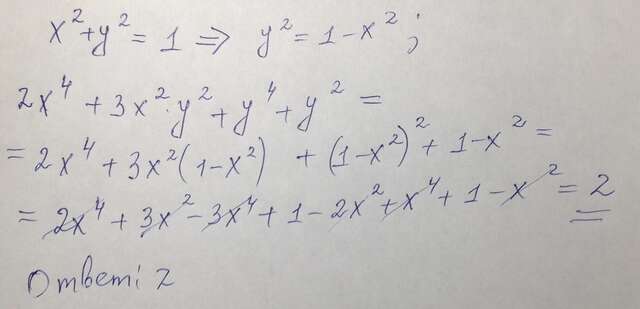 x² + y² = 1 ⇒ y² = 1 - x² ;
2x⁴ + 3x² · y² + y⁴ + y² =
= 2x⁴ + 3x²(1-x²) + (1-x²)² + 1 - x² =
= 2x⁴ + 3x² - 3x⁴ + 1 - 2x² + x⁴ + 1 - x² = 2
Ответ: 2